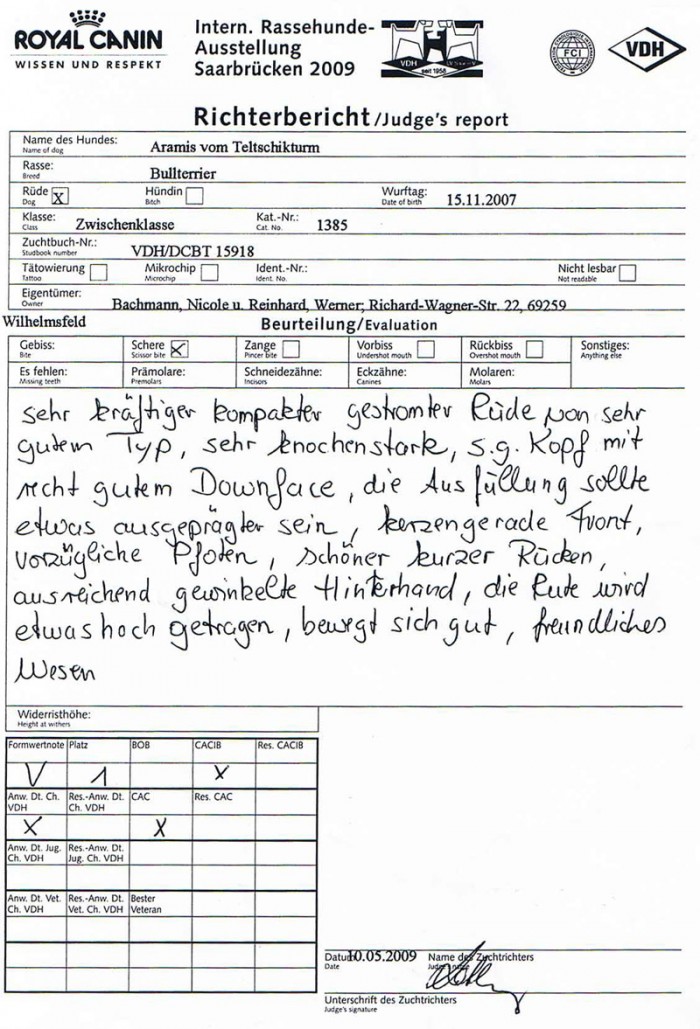 ROYAL CANIN
WISSEN UND RESPEKT
Intern. Rassehunde-
Ausstellung
Saarbrücken 2009
VDH
seit 1958
FCI
VDH
Richterbericht/Judge's report
Name des Hundes: Aramis vom Teltschikturm
Name of dog
Rasse: Bullterrier
Breed
Rüde X Hündin Wurftag: 15.11.2007
Dog Bitch Date of birth
Klasse: Zwischenklasse Kat.-Nr.: 1385
Class Cat. No.
Zuchtbuch-Nr.: VDH/DCBT 15918
Studbook number
Tätowierung Mikrochip Ident.-Nr.: Nicht lesbar
Tattoo Microchip Ident. No. Not readable
Eigentümer: Bachmann, Nicole u. Reinhard, Werner; Richard-Wagner-Str. 22, 69259
Owner
Wilhelmsfeld
Beurteilung/Evaluation
Gebiss: Schere X Zange Vorbiss Rückbiss Sonstiges:
Bite Scissor bite Pincer bite Undershot mouth Overshot mouth Anything else
Es fehlen: Prämolare: Schneidezähne: Eckzähne: Molaren:
Missing teeth Premolars Incisors Canines Molars
sehr kräftiger kompakter gestromter Rüde von sehr
gutem Typ, sehr knochenstark, s.g. Kopf mit
recht gutem Downface, die Ausfüllung sollte
etwas ausgeprägter sein, kerzengerade Front,
vorzügliche Pfoten, schöner kurzer Rücken,
ausreichend gewinkelte Hinterhand, die Rute wird
etwas hoch getragen, bewegt sich gut, freundliches
Wesen
Widerristhöhe:
Height at withers
Formwertnote Platz BOB CACIB Res. CACIB
V 1 X
Anw. Dt. Ch. VDH Res.-Anw. Dt. Ch. VDH CAC Res. CAC
X X
Anw. Dt. Jug. Ch. VDH Res.-Anw. Dt. Jug. Ch. VDH
Anw. Dt. Vet. Ch. VDH Res.-Anw. Dt. Vet. Ch. VDH Bester Veteran
Datum 10.05.2009 Name des Zuchtrichters
Date Judge's name
Unterschrift des Zuchtrichters
Judge's signature